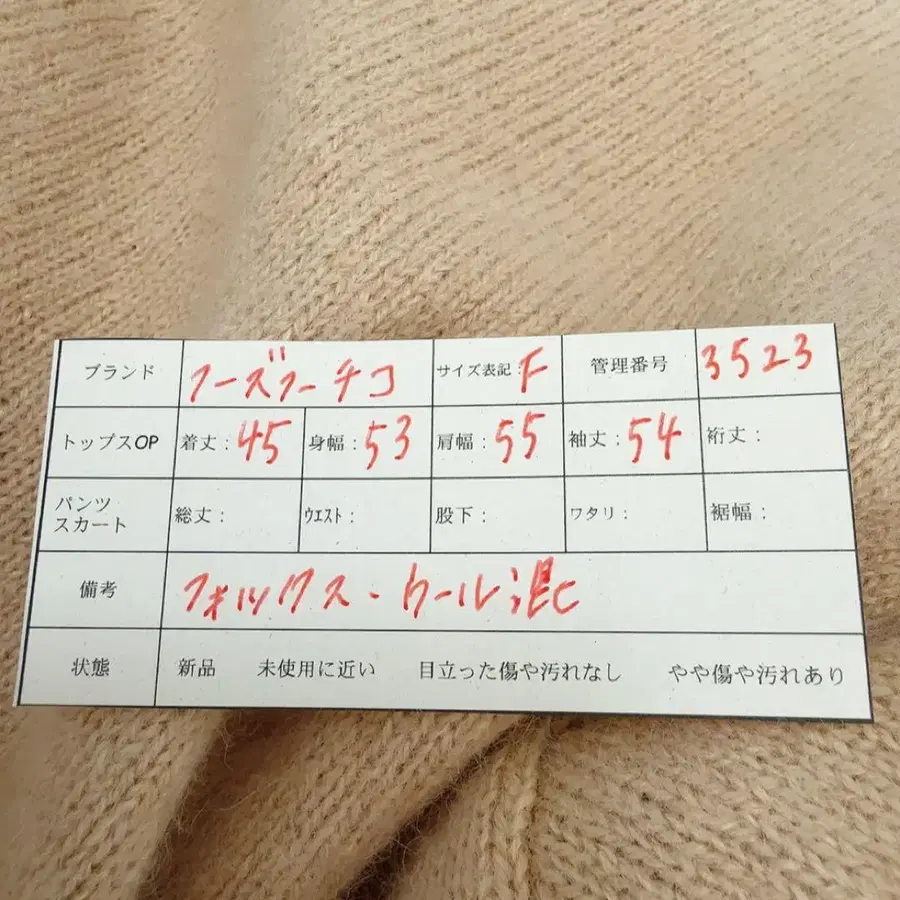 ブランド フーズフーチコ サイズ表記：F 管理番号 3523
トップスOP 着丈：45 身幅：53 肩幅：55 袖丈：54 裄丈：
パンツ
スカート 総丈： ウエスト： 股下： ワタリ： 裾幅：
備考 フォックス・ウール混
状態 新品 未使用に近い 目立った傷や汚れなし やや傷や汚れあり